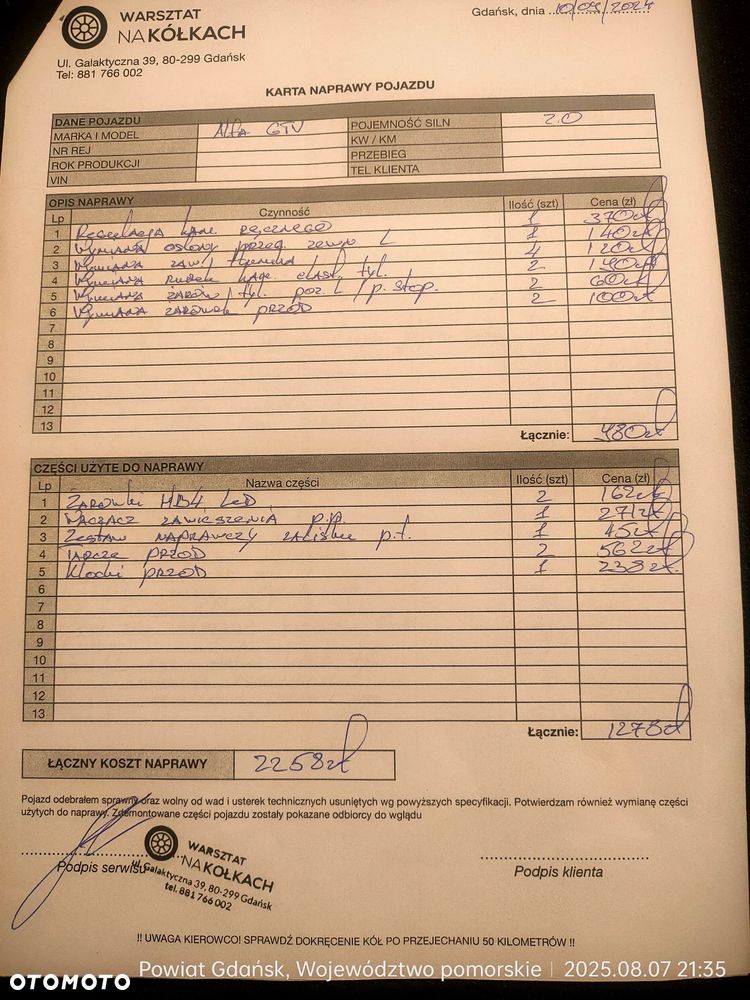 WARSZTAT
NA KÓŁKACH
Ul. Galaktyczna 39, 80-299 Gdańsk
Tel: 881 766 002
Gdańsk, dnia 10/09/2024
KARTA NAPRAWY POJAZDU
DANE POJAZDU
MARKA I MODEL Alfa GTV POJEMNOŚĆ SILN 2.0
NR REJ KW / KM
ROK PRODUKCJI PRZEBIEG
VIN TEL KLIENTA
OPIS NAPRAWY
Lp Czynność Ilość (szt) Cena (zł)
1 Regulacja ham. ręcznego 1 370zł
2 Wymiana osłony przeg. zewn L 1 140zł
3 Wymiana zaw/ 4 120zł
4 Wymiana rurek ham. elast. tyl. 2 190zł
5 Wymiana żarów. tyl. poz. L / p. stop. 2 60zł
6 Wymiana żarówek przód 2 100zł
7
8
9
10
11
12
13
Łącznie: 980zł
CZĘŚCI UŻYTE DO NAPRAWY
Lp Nazwa części Ilość (szt) Cena (zł)
1 Żarówki HB4 LED 2 162zł
2 Wachacz zawieszenia p.p. 1 271zł
3 Zestaw naprawczy zacisku p.t. 1 45zł
4 Tarcze przód 2 562zł
5 Klocki przód 1 238zł
6
7
8
9
10
11
12
13
Łącznie: 1278zł
ŁĄCZNY KOSZT NAPRAWY 2258zł
Pojazd odebrałem sprawny oraz wolny od wad i usterek technicznych usuniętych wg powyższych specyfikacji. Potwierdzam również wymianę części
użytych do naprawy. Zdemontowane części pojazdu zostały pokazane odbiorcy do wglądu
Podpis serwisu
WARSZTAT
NA KOŁKACH
ul. Galaktyczna 39, 80-299 Gdańsk
tel. 881 766 002
Podpis klienta
!! UWAGA KIEROWCO! SPRAWDŹ DOKRĘCENIE KÓŁ PO PRZEJECHANIU 50 KILOMETRÓW !!
OTOMOTO
Powiat Gdańsk, Województwo pomorskie | 2025.08.07 21:35